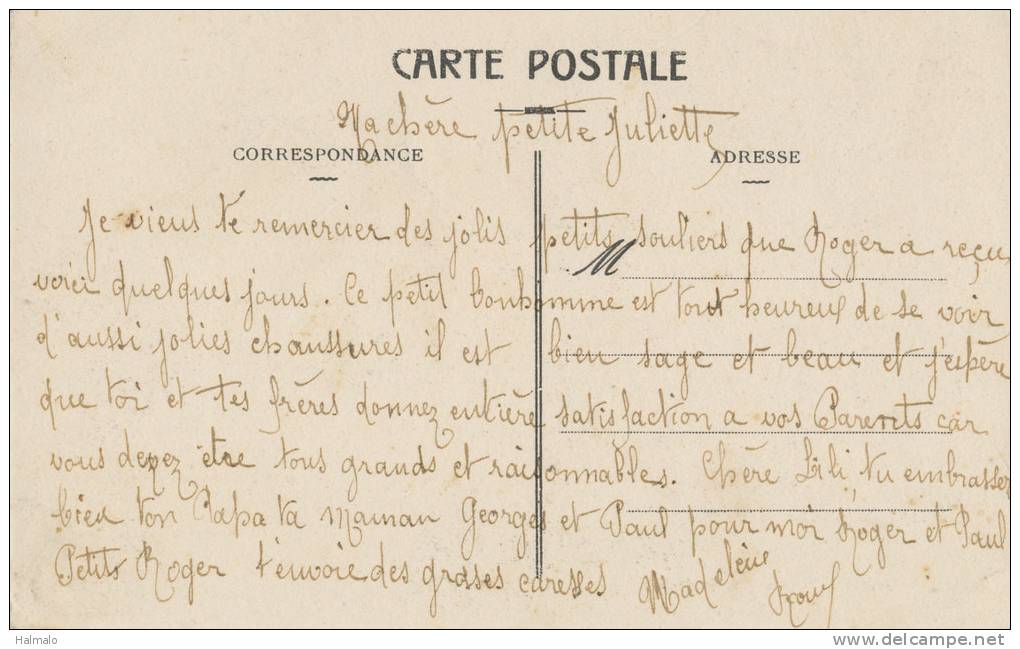 CARTE POSTALE
Ma chère petite Juliette
CORRESPONDANCE ADRESSE
Je viens te remercier des jolis petits souliers que Roger a reçu
M
voici quelques jours. Ce petit bonhomme est tout heureux de se voir
d'aussi jolies chaussures il est bien sage et beau et j'espère
que toi et tes frères donnez entière satisfaction a vos Parents car
vous devez être tous grands et raisonnables. Chère Lili, tu embrasses
bien ton Papa ta Maman Georges et Paul pour moi Roger et Paul
Petits Roger t'envoie des grosses caresses Madeleine
Halmalo
delcampe.net